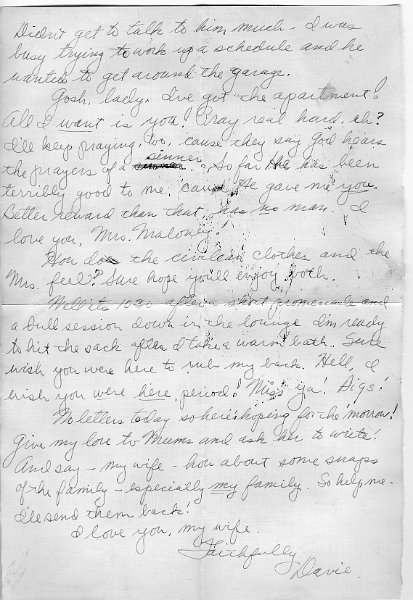 Didn't get to talk to him much - I was
busy trying to work up a schedule and he
wanted to get around the garage.
Gosh, lady. I've got the apartment!
All I want is you! Pray real hard, eh?
I'll keep praying, too, 'cause they say God hears
the prayers of a sinner. So far He has been
terribly good to me, 'cause He gave me you.
Better reward than that, has no man. I
love you, Mrs. Maloney!
How do the civilean clothes and the
Mrs. feel? Sure hope you'll enjoy both.
Well it's 1030 after a short promenade and
a bull session down in the lounge I'm ready
to hit the sack after I take a warm bath. Sure
wish you were here to rub my back. Hell, I
wish you were here, period! Miss ya! Digs!
No letters today so here's hoping for the morrow!
Give my love to Mums and ask her to write!
And say - my wife - how about some snaps
of the family - especially my family. So help me -
I'll send them back!
I love you, my wife.
Faithfully
Davie.